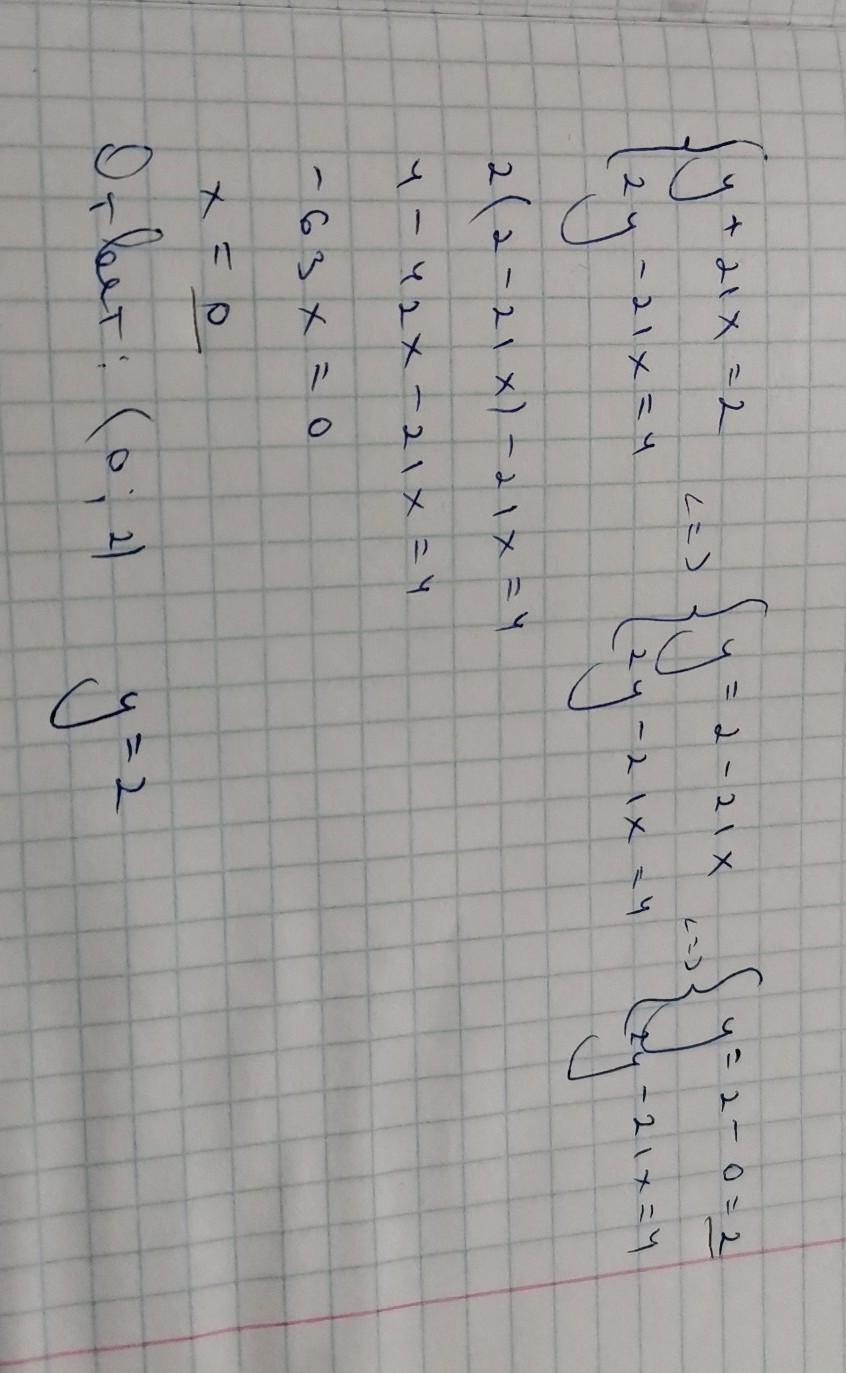 { y + 21x = 2 <=> { y = 2 - 21x <=> { y = 2 - 0 = 2
2y - 21x = 4 2y - 21x = 4 2y - 21x = 4
2(2 - 21x) - 21x = 4
4 - 42x - 21x = 4
- 63x = 0
x = 0
Ответ: (0; 2) y = 2